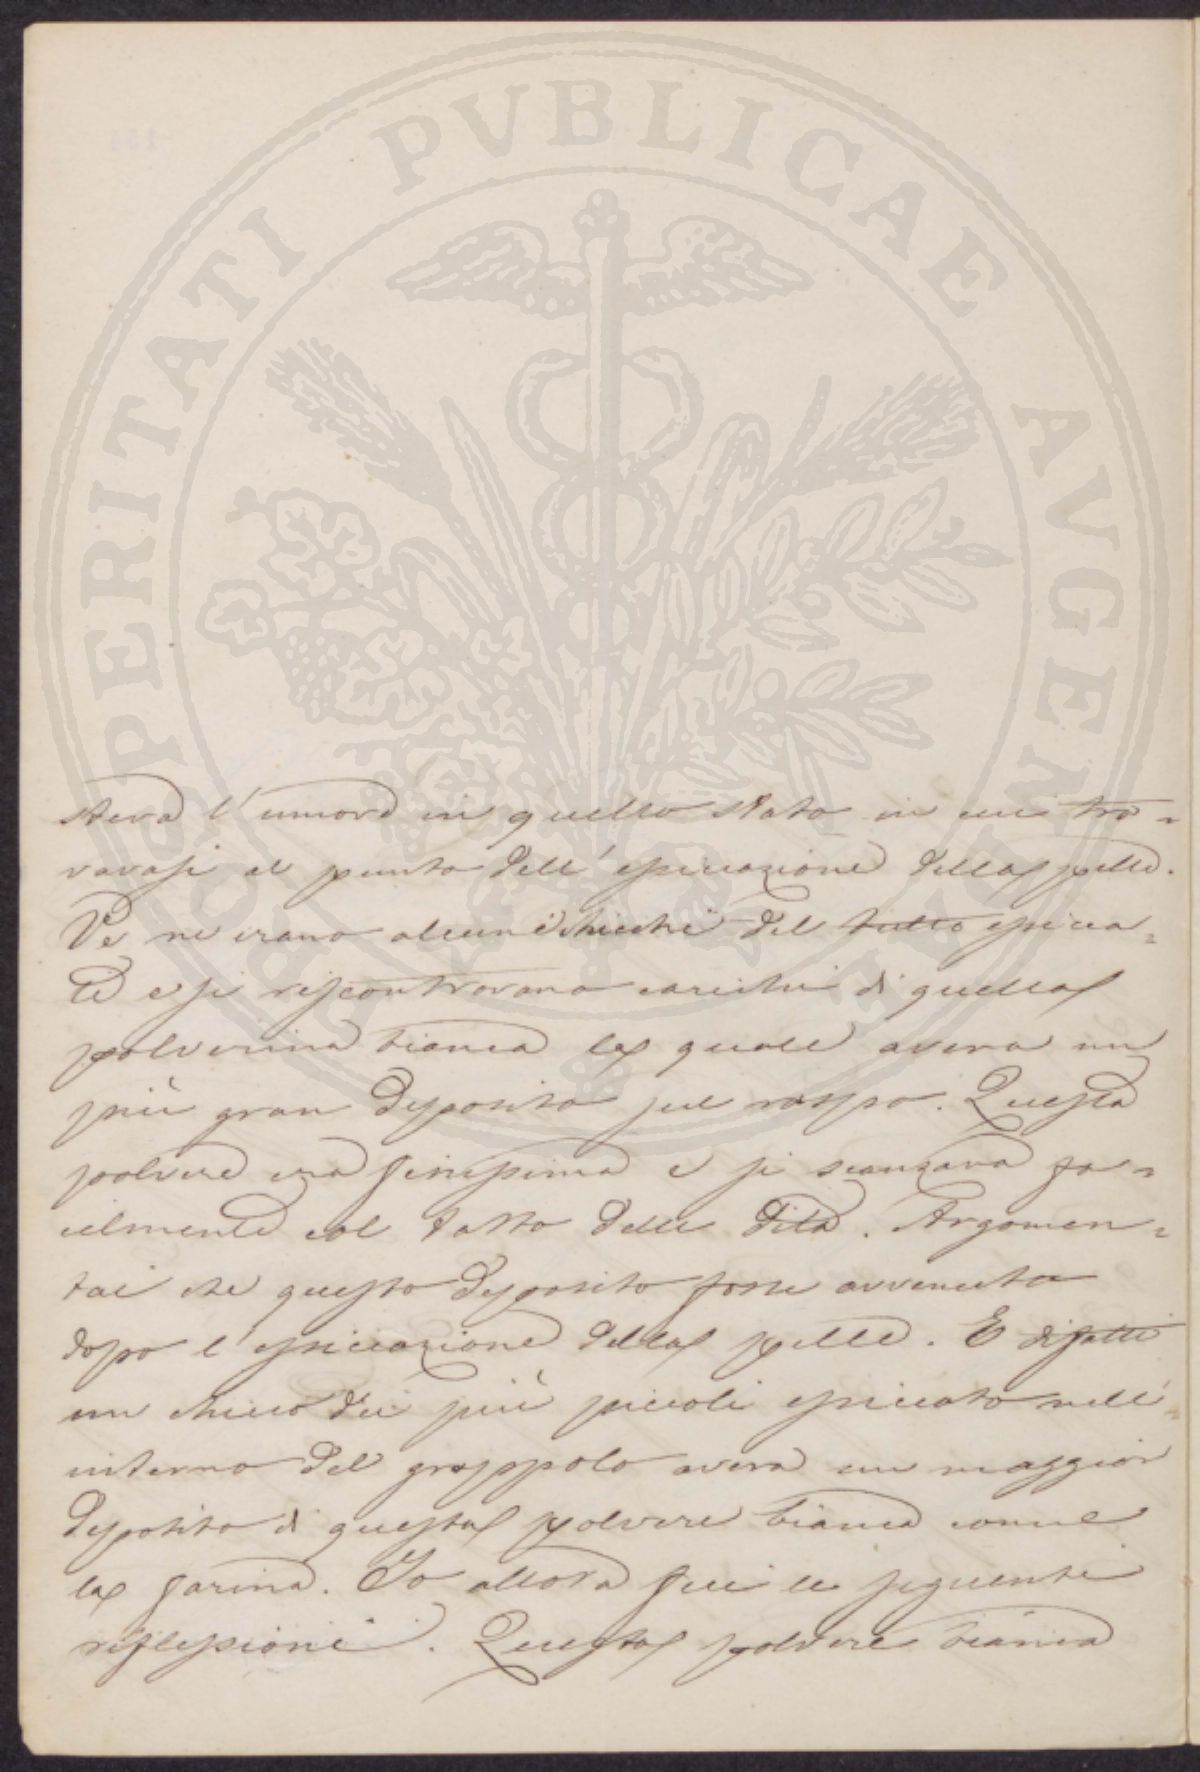 PROSPERITATI PUBLICAE AVGENDAE
stava l'umore in quello stato in cui tro=
vavasi al punto dell'essiccazione della pelle.
Ve ne erano alcuni chicchi del tutto essicca=
ti e si riscontravano carichi di quella
polverina bianca la quale aveva un
più gran deposito sul raspo. Questa
polvere era finissima e si scanzava fa=
cilmente col tatto delle dita. Argomen=
tai che questo deposito fosse avvenuto
dopo l'essiccazione della pelle. E difatti
un chicco dei più piccoli essiccato nell'
interno del grappolo aveva un maggior
deposito di questa polvere bianca come
la farina. Io allora feci le seguenti
riflessioni. Questa polvere bianca